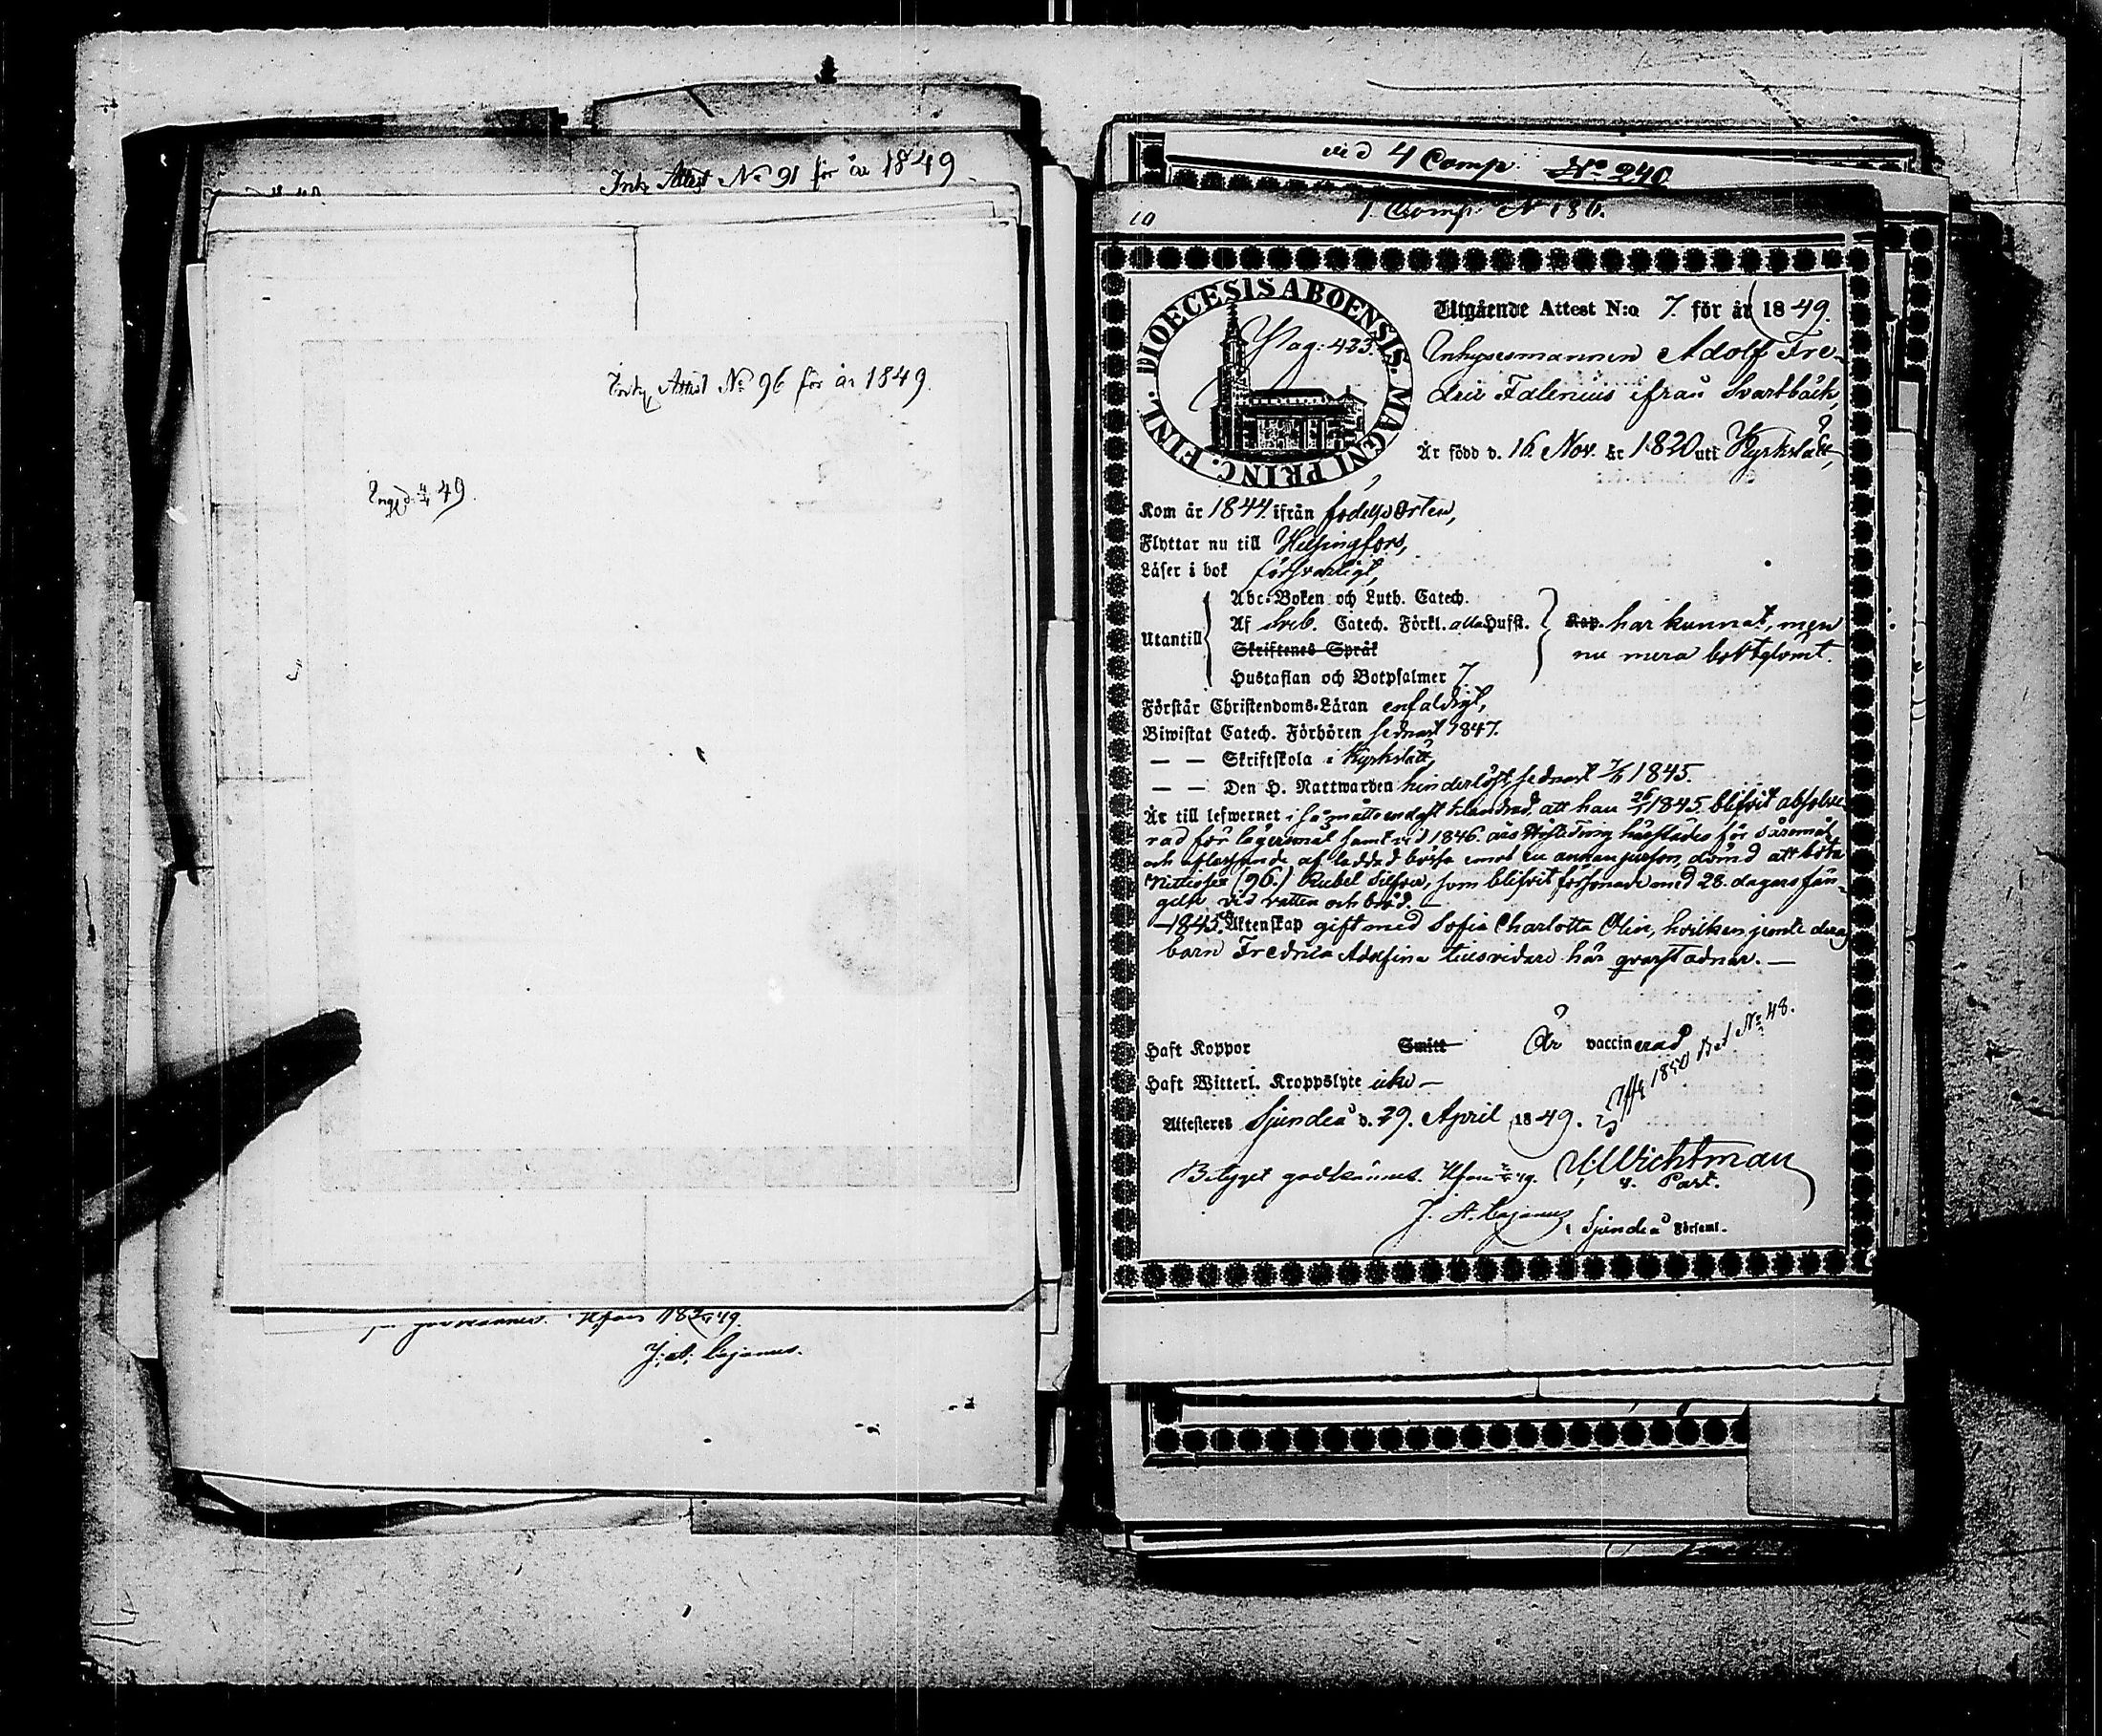 Ink. Attest No 91 för år 1849
Ink. Attest No 96 för år 1849.
49.
1849.
J. A. Cajanus.
vid 4 Comp. No 240
1 Comp. N 186.
10
DIOECESIS ABOENSIS. MAGNI PRINC. FINL.
Pag: 423.
Utgående Attest N:o 7. för år 1849.
Inhysesmannen Adolf Fre-
dric Falenius ifrån Svartbäck,
Är född d. 16 Nov. år 1820 uti Kyrkslätt,
Kom år 1844 ifrån födelse Orten,
Flyttar nu till Helsingfors,
Läser i bok försvarligt,
Utantill
Abc-Boken och Luth. Catech.
Af Sveb. Catech. Förkl. alla Hufst.
Skriftenes Språk
Hustaflan och Botpsalmer 7
Kap. har kunnat, men
nu mera bortglömt.
Förstår Christendoms-Läran enfaldigt,
Biwistat Catech. Förhören sednast 1847.
— — Skriftskola i Kyrkslätt,
— — Den H. Nattwarden hinderlöst, sednast 1845.
Är till lefwernet i så måtto endast klandrad, att han 1845 blifvit absolve-
rad för lägersmål samt vid 1846 års Höste Ting härstädes för
och aflossande af laddad bössa emot en annan person, dömd att böta
Nittiosex (96.) Rubel Silfver, som blifvit försonade med 28. dagars fän-
gelse vid vatten och bröd. —
1845 Äktenskap gift med Sofia Charlotta Olin, hvilken jemte deras
barn Fredrica Adolfina tillsvidare här qvarstadnar. —
Haft Koppor Smitt Är vaccinerad
Haft Witterl. Kroppslyte icke —
1850 Bet No 48.
Attesteras Sjundeå d. 29. April 1849.
Betyget godkännes. Hfors 49.
Wichtman
v. Past.
J. A. Cajanus
i Sjundeå Församl.